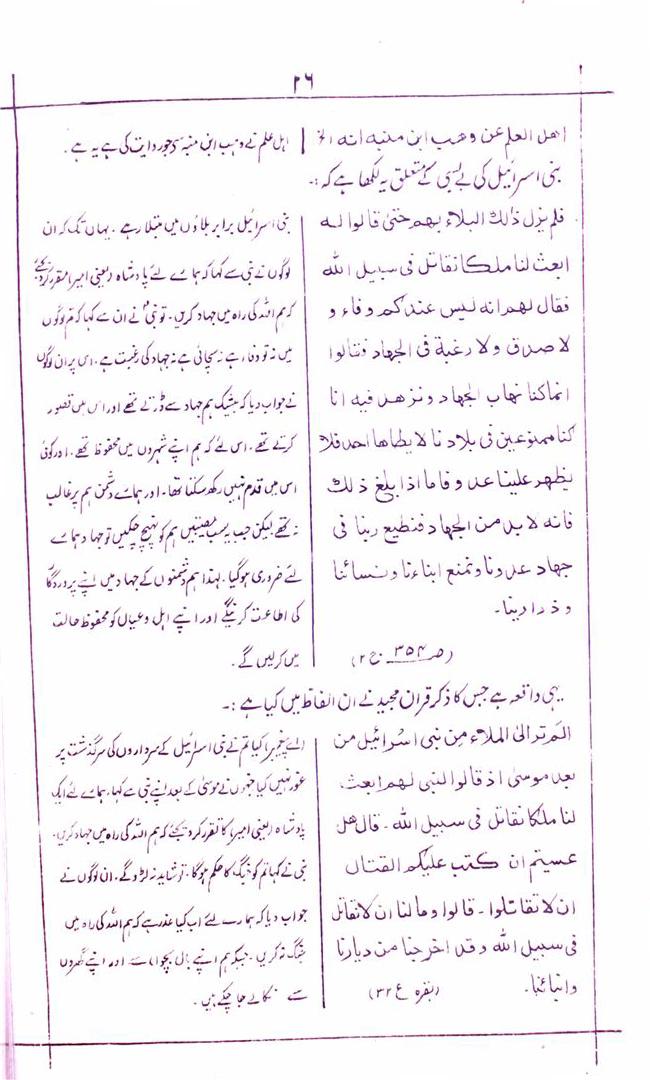 ۲۶
اهل العلم عن وهب ابن منبه انه الخ
اہل علم نے وہب ابن منبہ سے جو روایت کی ہے یہ ہے ۔
بنی اسرائیل کی بے بسی کے متعلق یہ لکھا ہے کہ :۔
فلم یزل ذالك البلاء بهم حتیٰ قالوا لـه
ابعث لنا ملكا نقاتل فی سبیل الله
فقال لهم انه لیس عندكم وفاء و
لا صدق ولا رغبة فی الجهاد فقالوا
انما كنا نهاب الجهاد ونزهد فیه انا
كنا ممنوعین فی بلادنا لا یطاها احد فلا
یظهر علینا عدو فاما اذا بلغ ذلك
فانه لابد من الجهاد فنطیع ربنا فی
جهاد عدونا ونمنع ابناءنا ونسائنا
و ذرارینا ۔
(صـ ۳۵۴ ج ۲)
بنی اسرائیل برابر بلاؤں میں مبتلا رہے ۔ یہاں تک کہ ان
لوگوں نے نبی سے کہا کہ ہمارے لئے پادشاہ (یعنی امیر) مقرر کردیجئے
کہ ہم اللہ کی راہ میں جہاد کریں ۔ تو نبی نے ان سے کہا کہ تم لوگوں
میں نہ تو وفا ہے نہ سچائی ہے نہ جہاد کی رغبت ہے ۔ اس پر ان لوگوں
نے جواب دیا کہ بیشک ہم جہاد سے ڈرتے تھے اور اس میں قصور
کرتے تھے ۔ اس لئے کہ ہم اپنے شہروں میں محفوظ تھے ۔ اور کوئی
اس میں قدم نہیں رکھ سکتا تھا ۔ اور ہمارے دشمن ہم پر غالب
نہ تھے لیکن جب یہ سب مصیبتیں ہم کو پہنچ چکیں تو جہاد ہمارے
لئے ضروری ہوگیا ۔ لہذا ہم دشمنوں کے جہاد میں اپنے پروردگار
کی اطاعت کرینگے اور اپنے اہل و عیال کو محفوظ حالت
میں کرلیں گے ۔
یہی واقعہ ہے جس کا ذکر قرآن مجید نے ان الفاظ میں کیا ہے :۔
الم تر الیٰ الملاء من بنی اسرائیل من
بعد موسیٰ اذ قالوا لنبی لهم ابعث
لنا ملكا نقاتل فی سبیل الله ۔ قال هل
عسیتم ان كتب علیكم القتال
ان لا تقاتلوا ۔ قالوا وما لنا ان لا نقاتل
فی سبیل الله وقد اخرجنا من دیارنا
وابنائنا ۔ (بقرہ ع ۳۲)
اے پیغمبر! کیا تم نے بنی اسرائیل کے سرداروں کی سرگذشت پر
غور نہیں کیا جنہوں نے موسیٰ کے بعد اپنے نبی سے کہا، ہمارے لئے ایک
پادشاہ (یعنی امیر) کا تقرر کر دیجئے کہ ہم اللہ کی راہ میں جہاد کریں ۔
نبی نے کہا تم کو جنگ کا حکم ہوگا ۔ تو شاید نہ لڑو گے ۔ ان لوگوں نے
جواب دیا کہ ہمارے لئے اب کیا عذر ہے کہ ہم اللہ کی راہ میں
جنگ نہ کریں ۔ جبکہ ہم اپنے بال بچوں سے اور اپنے گھروں
سے نکالے جاچکے ہیں ۔